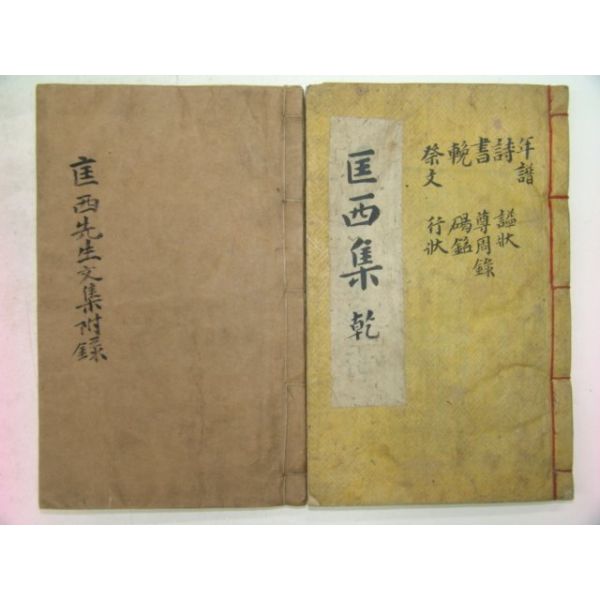 年譜 諡狀
詩 尊周錄
書 碣銘
輓 行狀
祭文
匡西集 乾
匡西先生文集附錄